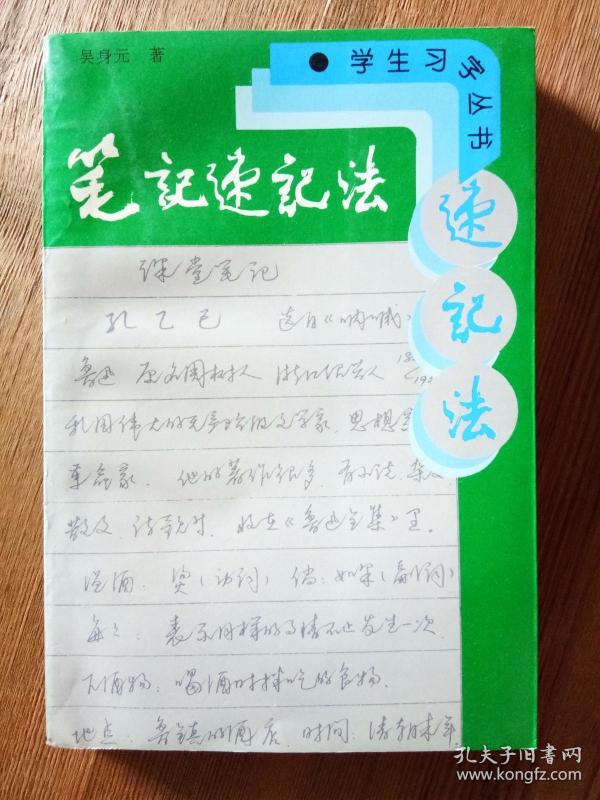 吴身元 著
●学生习字丛书
笔記速記法
速記法
课堂笔记
孔乙己 选自《呐喊》
鲁迅 原名周树人 浙江绍兴人
我国伟大的无产阶级文学家、思想
革命家. 他的著作很多, 有小说、杂文
散文、诗歌等. 收在《鲁迅全集》里.
温酒: 烫(动词) 倘: 如果(副词)
每每: 表示同样的事情不止发生一次
下酒物: 喝酒时择吃的食物.
地点: 鲁镇的酒店. 时间: 清朝末年
孔夫子旧书网
www.kongfz.com